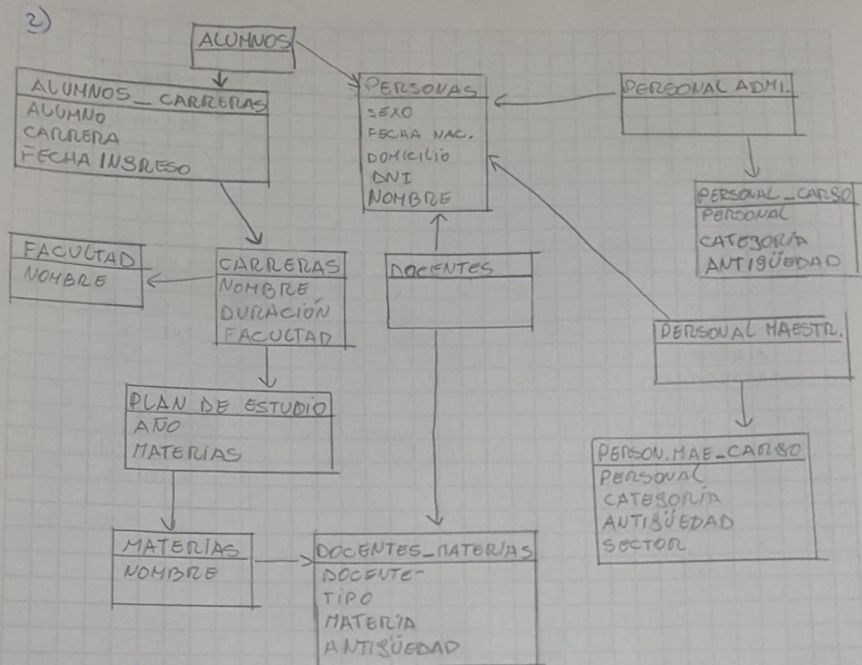 2)
ALUMNOS
ALUMNOS_CARRERAS
ALUMNO
CARRERA
FECHA INGRESO
PERSONAS
SEXO
FECHA NAC.
DOMICILIO
DNI
NOMBRE
PERSONAL ADMI.
PERSONAL_CARGO
PERSONAL
CATEGORÍA
ANTIGÜEDAD
FACULTAD
NOMBRE
CARRERAS
NOMBRE
DURACIÓN
FACULTAD
DOCENTES
PERSONAL MAESTR.
PLAN DE ESTUDIO
AÑO
MATERIAS
PERSON.MAE_CARGO
PERSONAL
CATEGORÍA
ANTIGÜEDAD
SECTOR
MATERIAS
NOMBRE
DOCENTES_MATERIAS
DOCENTE
TIPO
MATERIA
ANTIGÜEDAD